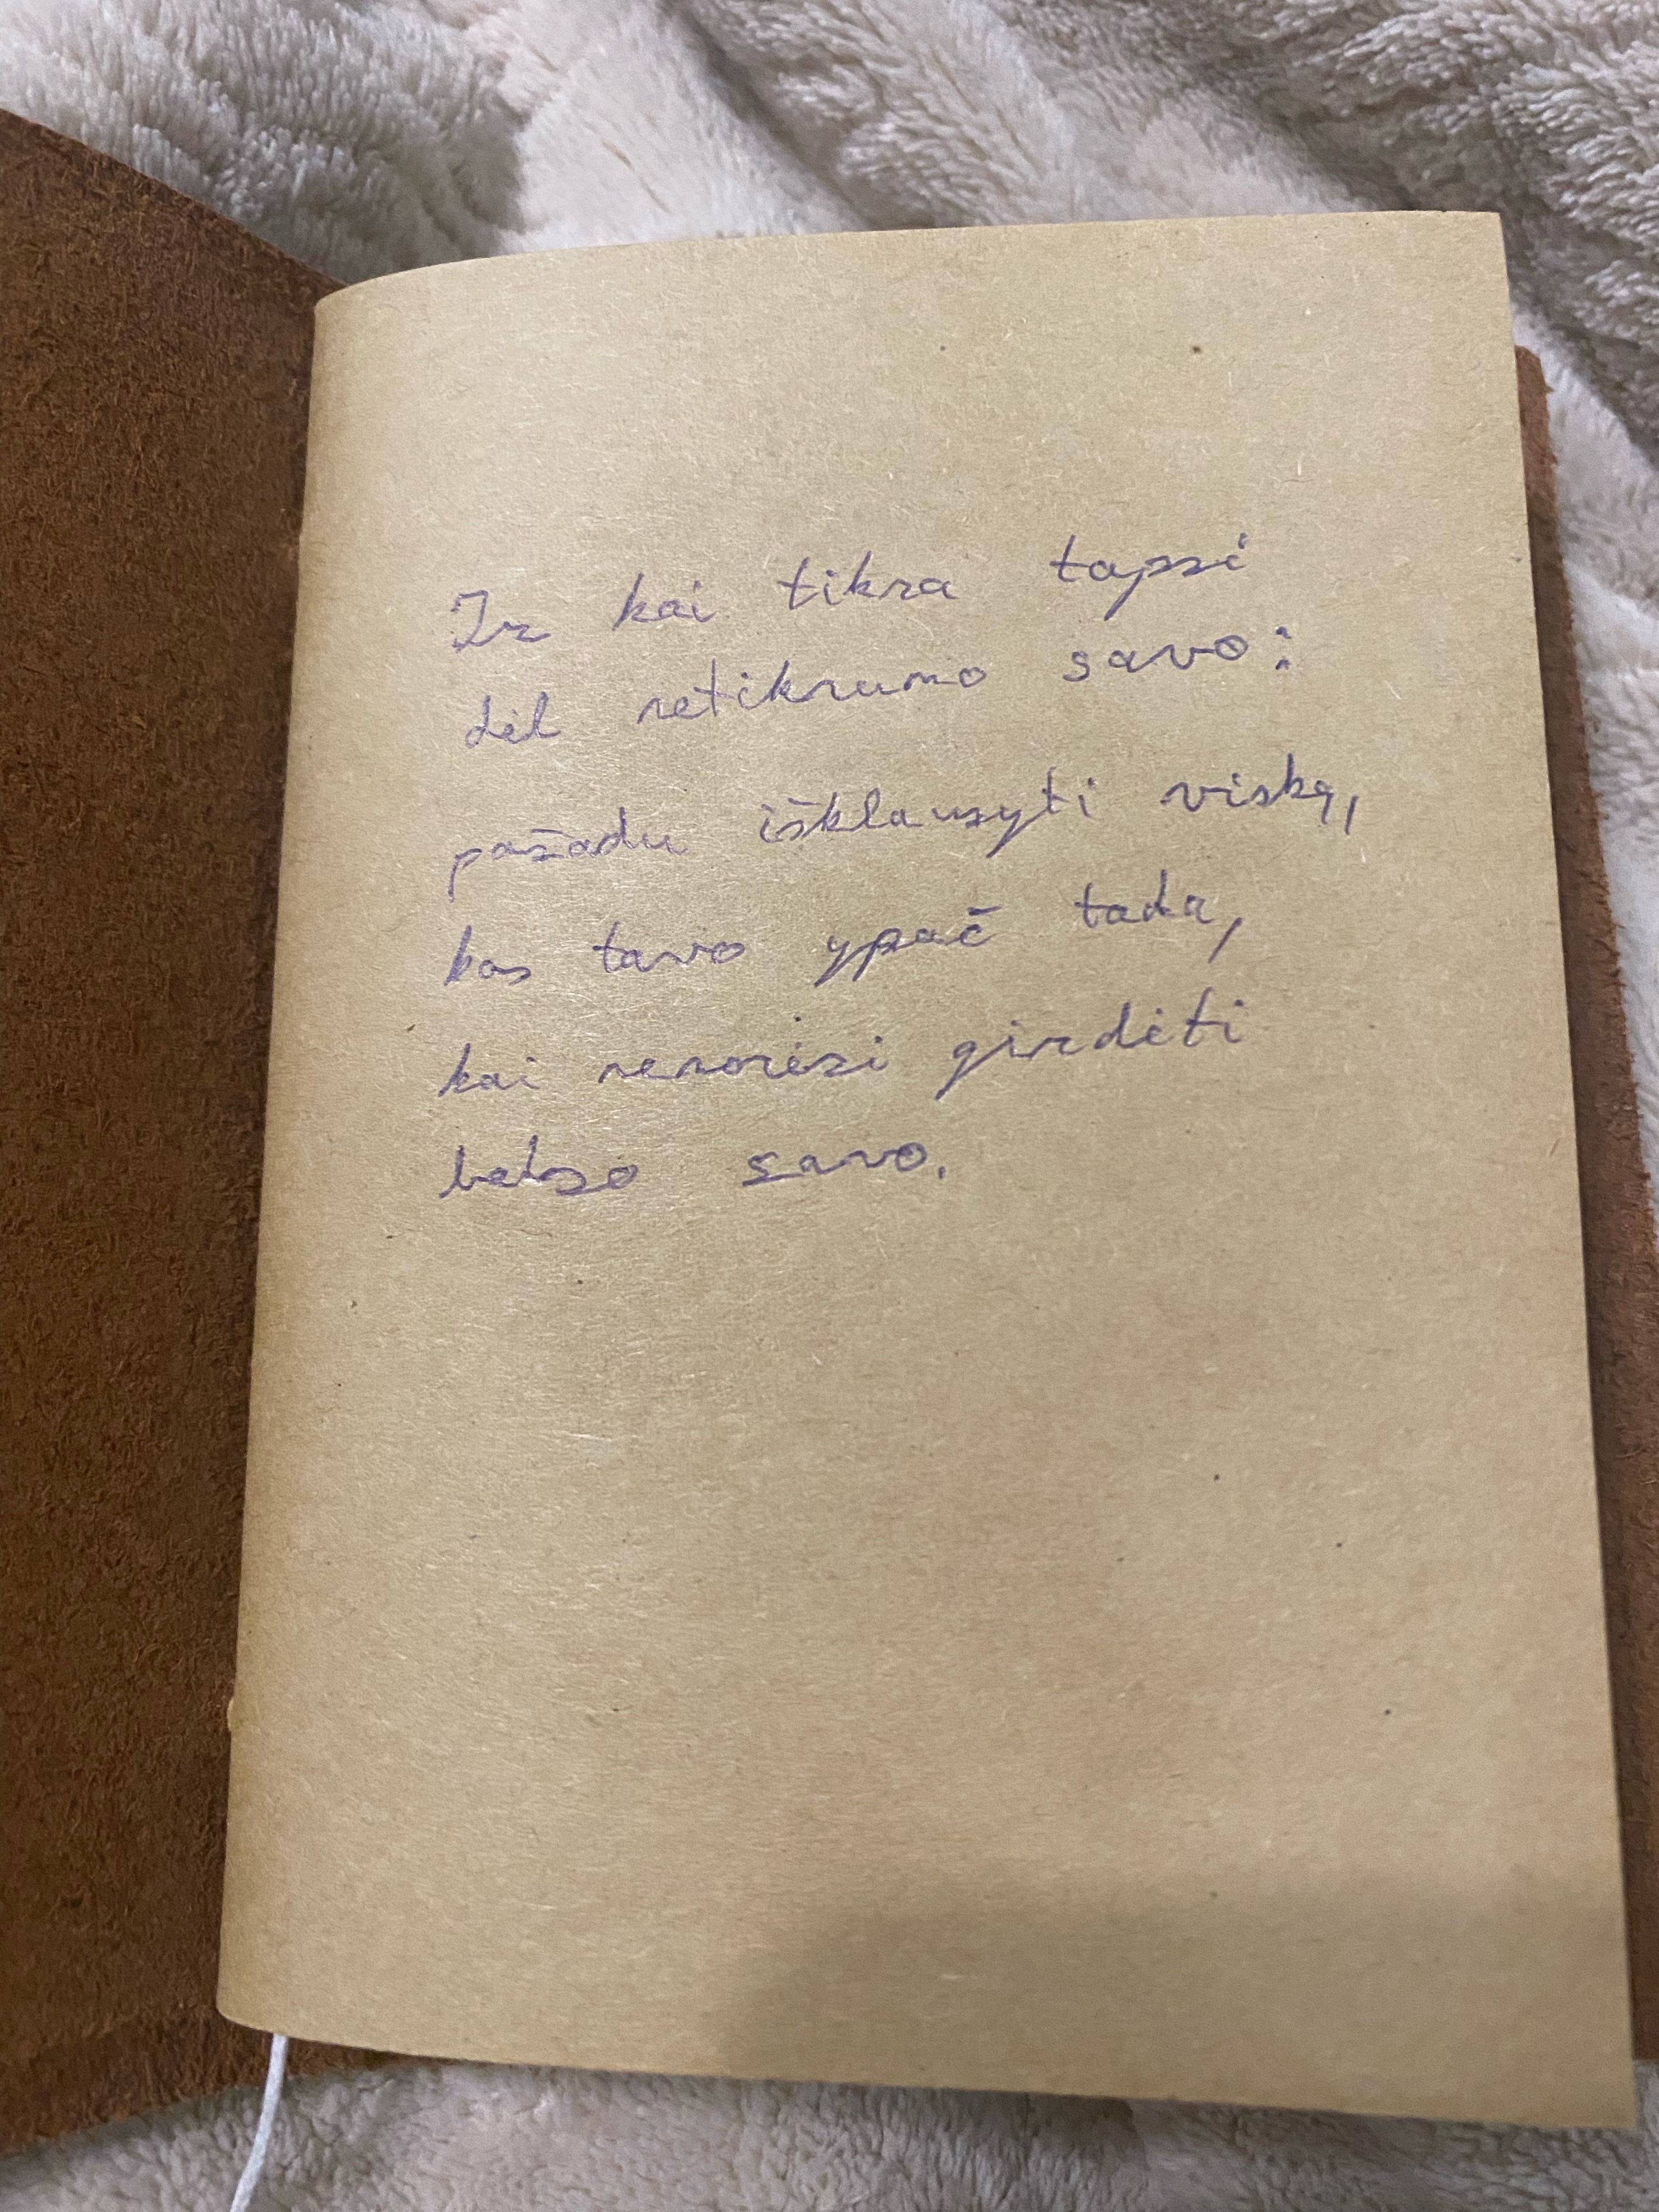 Ir kai tikra tapsi
dėl netikrumo savo:
pažadu išklausyti viską,
kas tavo ypač tada,
kai nenorėsi girdėti
balso savo.